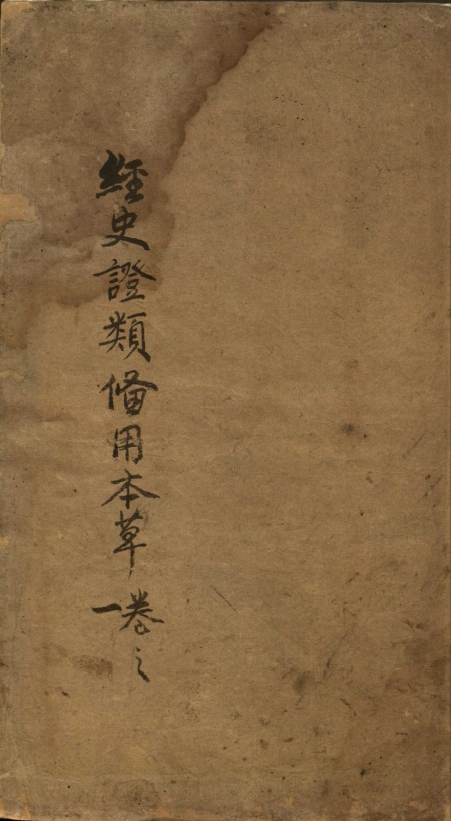 經史證類備用本草
卷之
一